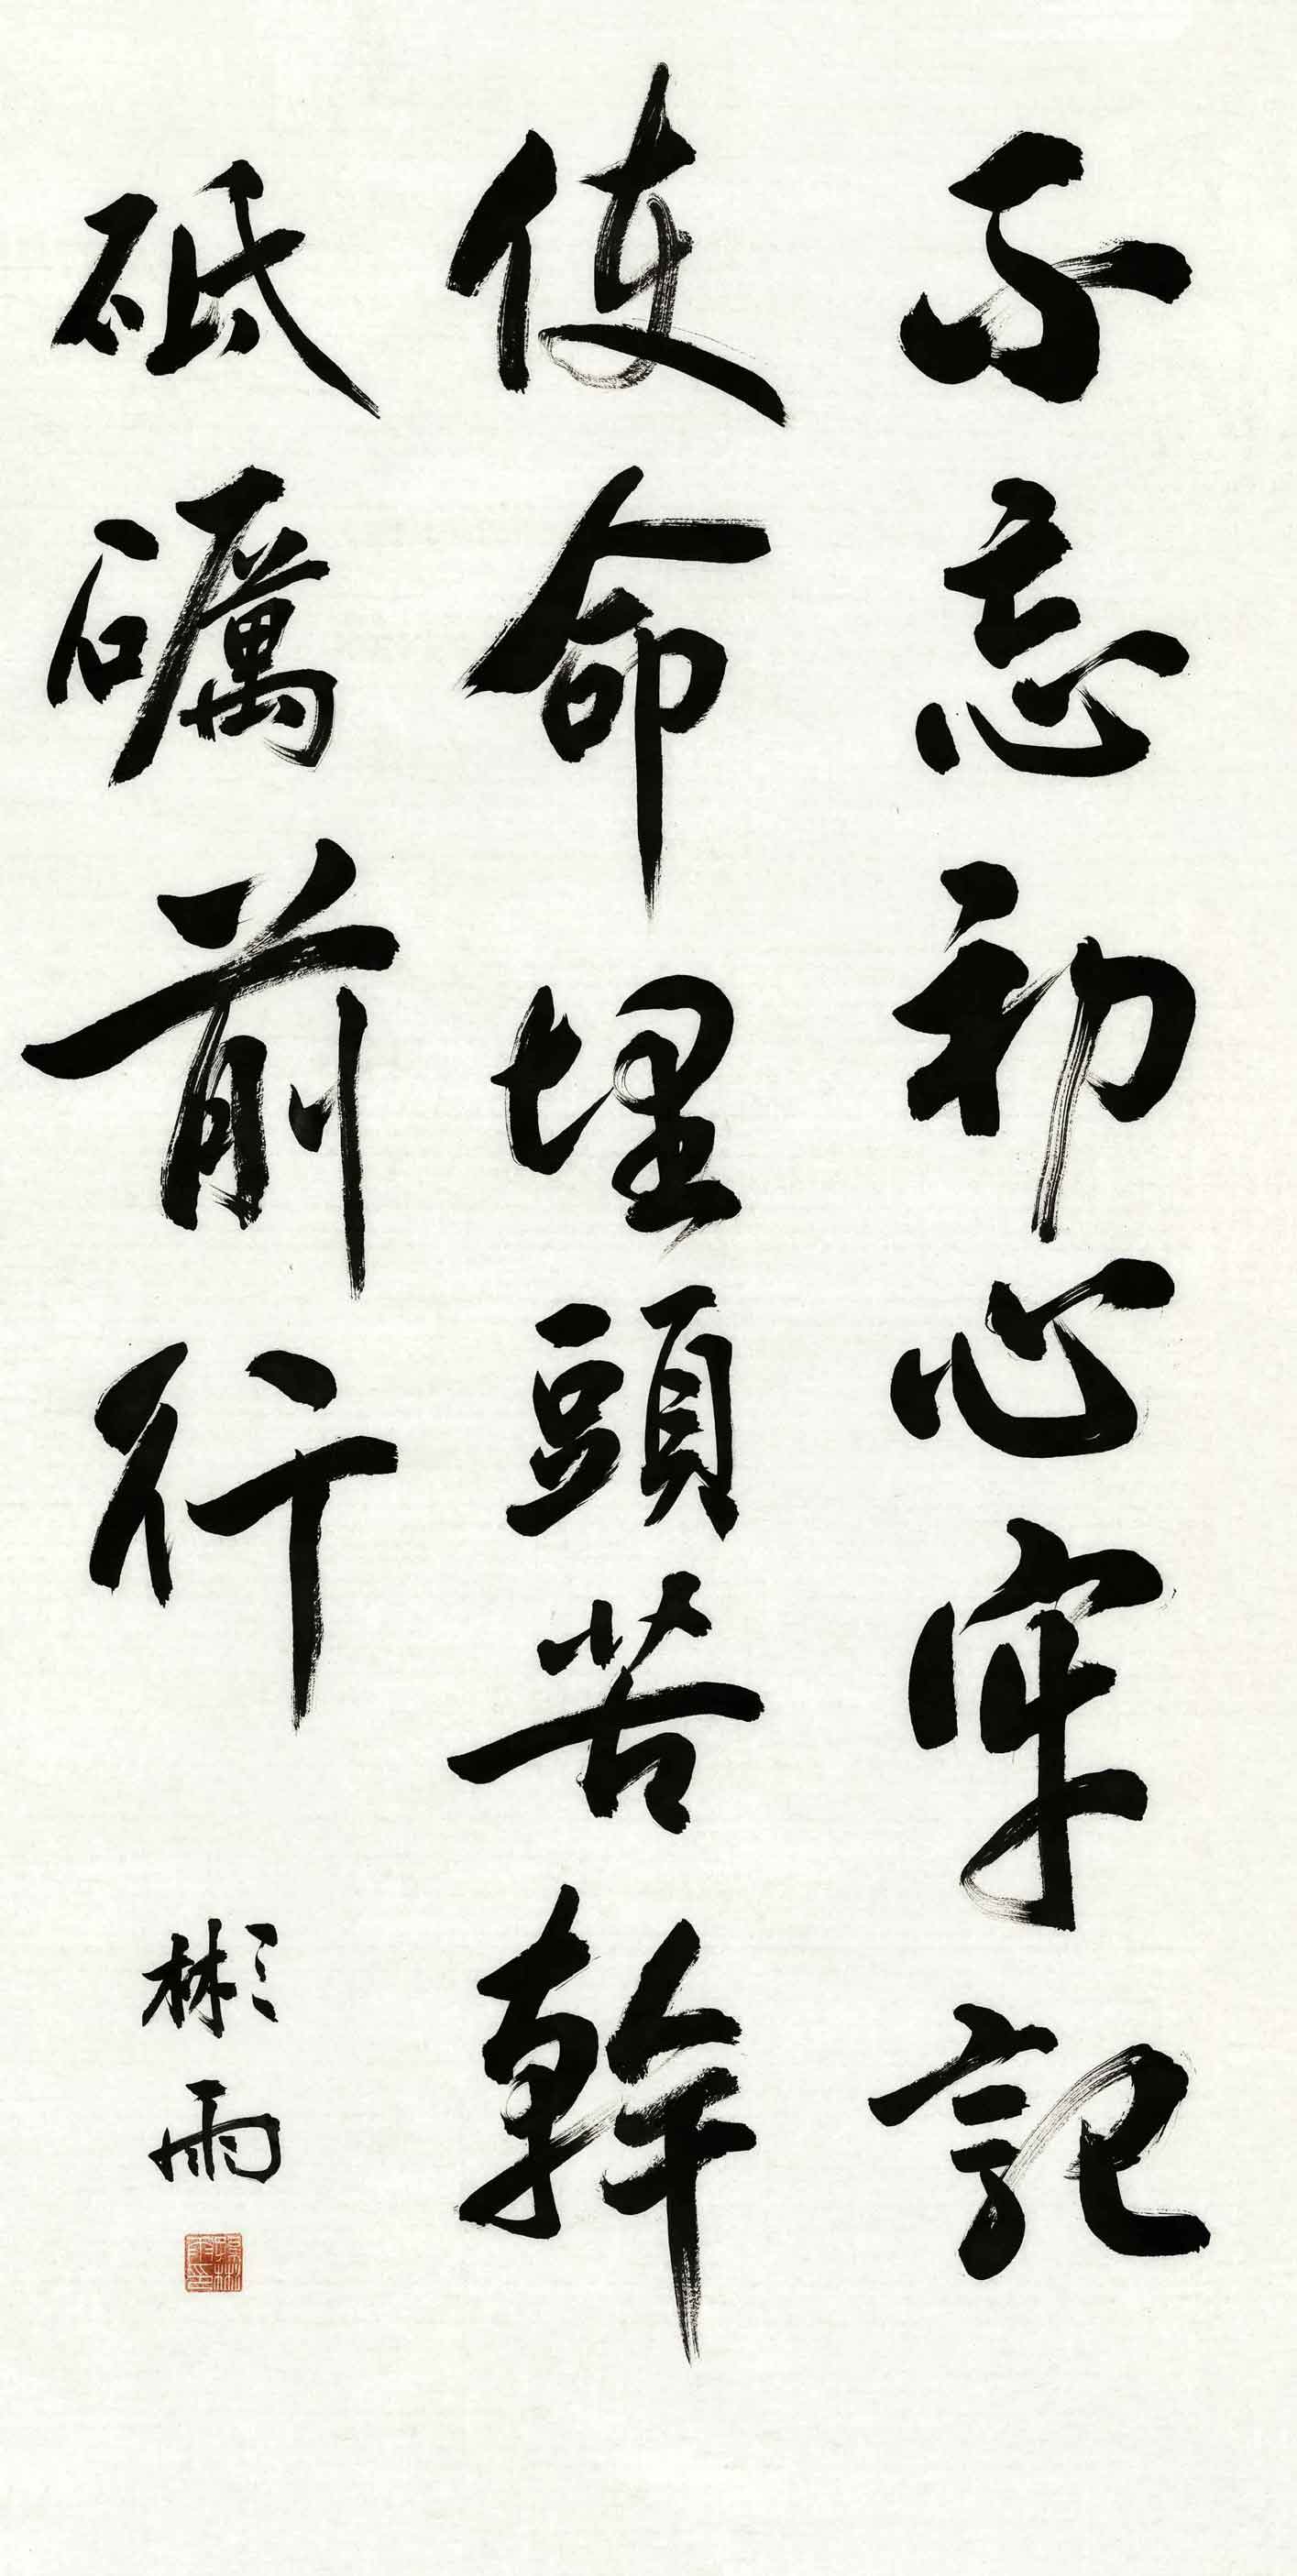 不忘初心牢記
使命埋頭苦幹
砥礪前行
彬雨